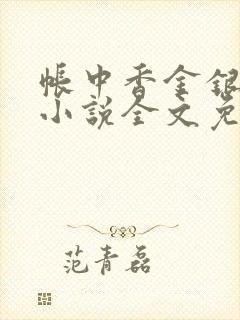 帳中香金銀
小說全文免
范青磊